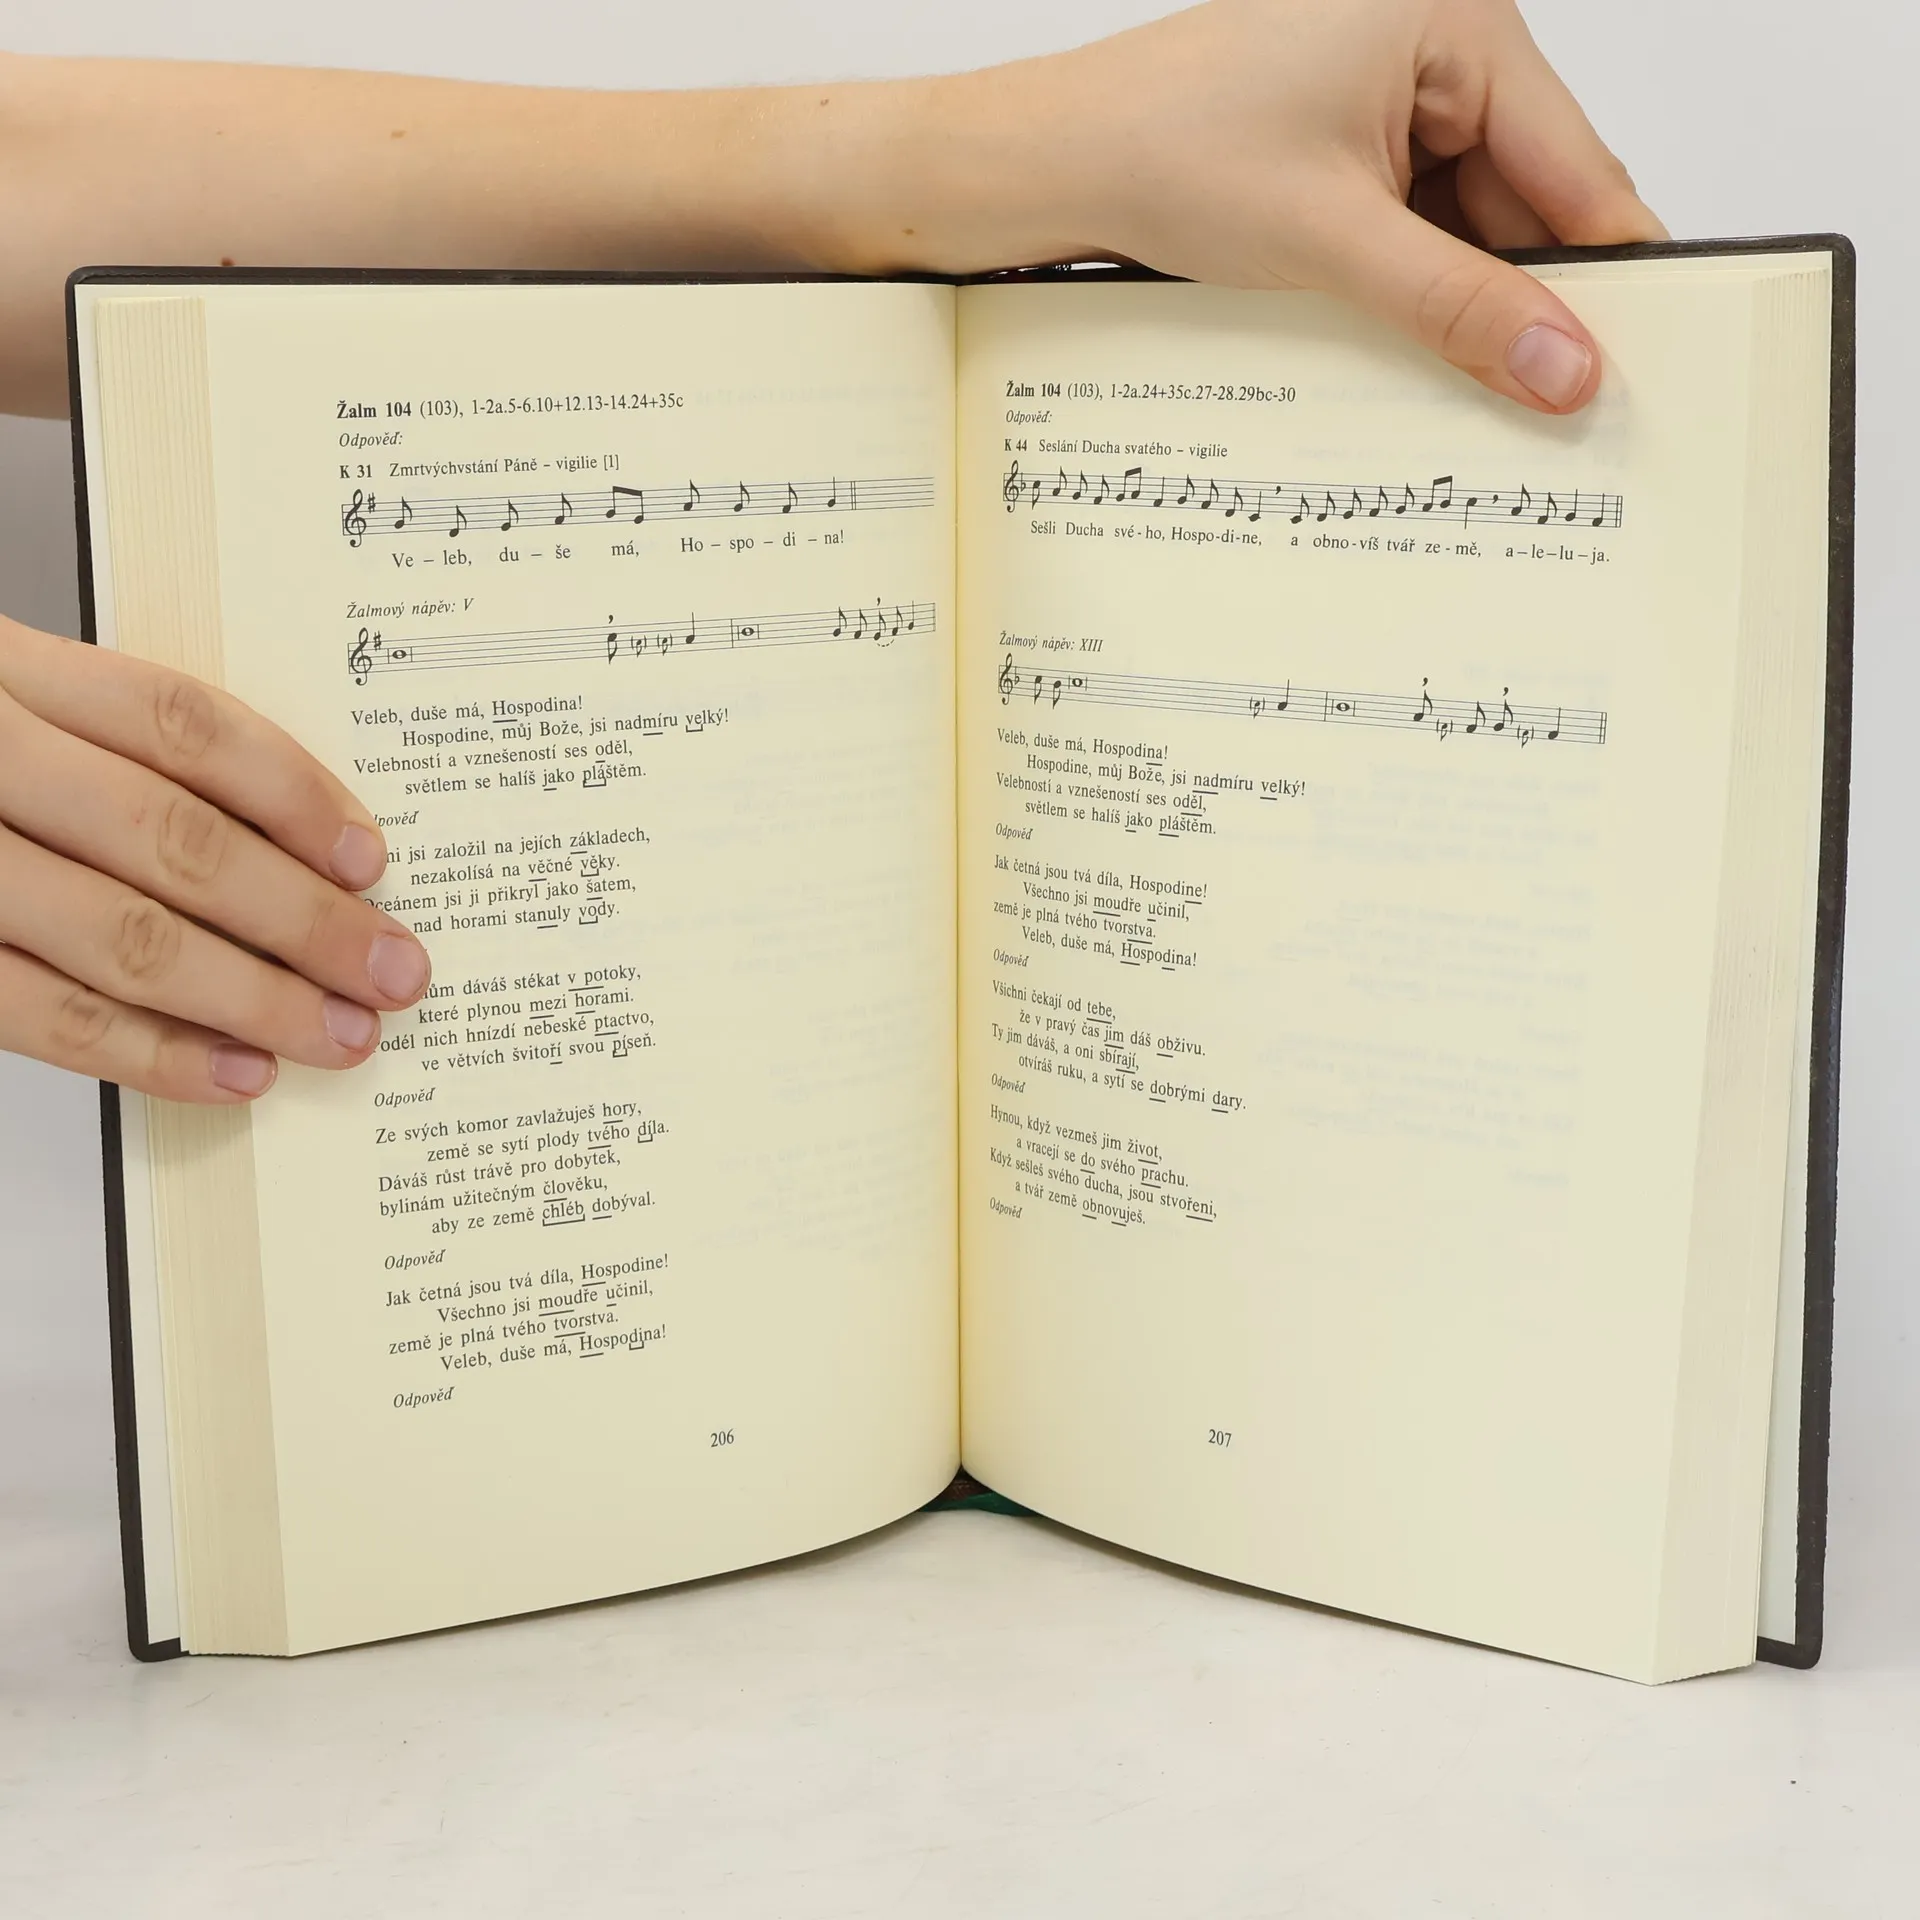 Žalm 104 (103), 1-2a.5-6.10+12.13-14.24+35c
Odpověď:
K 31 Zmrtvýchvstání Páně – vigilie [1]
Ve – leb, du – še má, Ho – spo – di – na!
Žalmový nápěv: V
Veleb, duše má, Hospodina!
Hospodine, můj Bože, jsi nadmíru velký!
Velebností a vznešeností ses oděl,
světlem se halíš jako pláštěm.
jsi založil na jejích základech,
nezakolísá na věčné věky.
Oceánem jsi ji přikryl jako šatem,
nad horami stanuly vody.
dáváš stékat v potoky,
které plynou mezi horami.
nich hnízdí nebeské ptactvo,
ve větvích švitoří svou píseň.
Odpověď
Ze svých komor zavlažuješ hory,
země se sytí plody tvého díla.
Dáváš růst trávě pro dobytek,
bylinám užitečným člověku,
aby ze země chléb dobýval.
Odpověď
Jak četná jsou tvá díla, Hospodine!
Všechno jsi moudře učinil,
země je plná tvého tvorstva.
Veleb, duše má, Hospodina!
Odpověď
206
Žalm 104 (103), 1-2a.24+35c.27-28.29bc-30
Odpověď:
K 44 Seslání Ducha svatého – vigilie
Sešli Ducha své-ho, Hospo-di-ne, a obno-víš tvář ze-mě, a–le–lu–ja.
Žalmový nápěv: XIII
Veleb, duše má, Hospodina!
Hospodine, můj Bože, jsi nadmíru velký!
Velebností a vznešeností ses oděl,
světlem se halíš jako pláštěm.
Odpověď
Jak četná jsou tvá díla, Hospodine!
Všechno jsi moudře učinil,
země je plná tvého tvorstva.
Veleb, duše má, Hospodina!
Odpověď
Všichni čekají od tebe,
že v pravý čas jim dáš obživu.
Ty jim dáváš, a oni sbírají,
otvíráš ruku, a sytí se dobrými dary.
Odpověď
Hynou, když vezmeš jim život,
a vracejí se do svého prachu.
Když sešleš svého ducha, jsou stvořeni,
a tvář země obnovuješ.
Odpověď
207